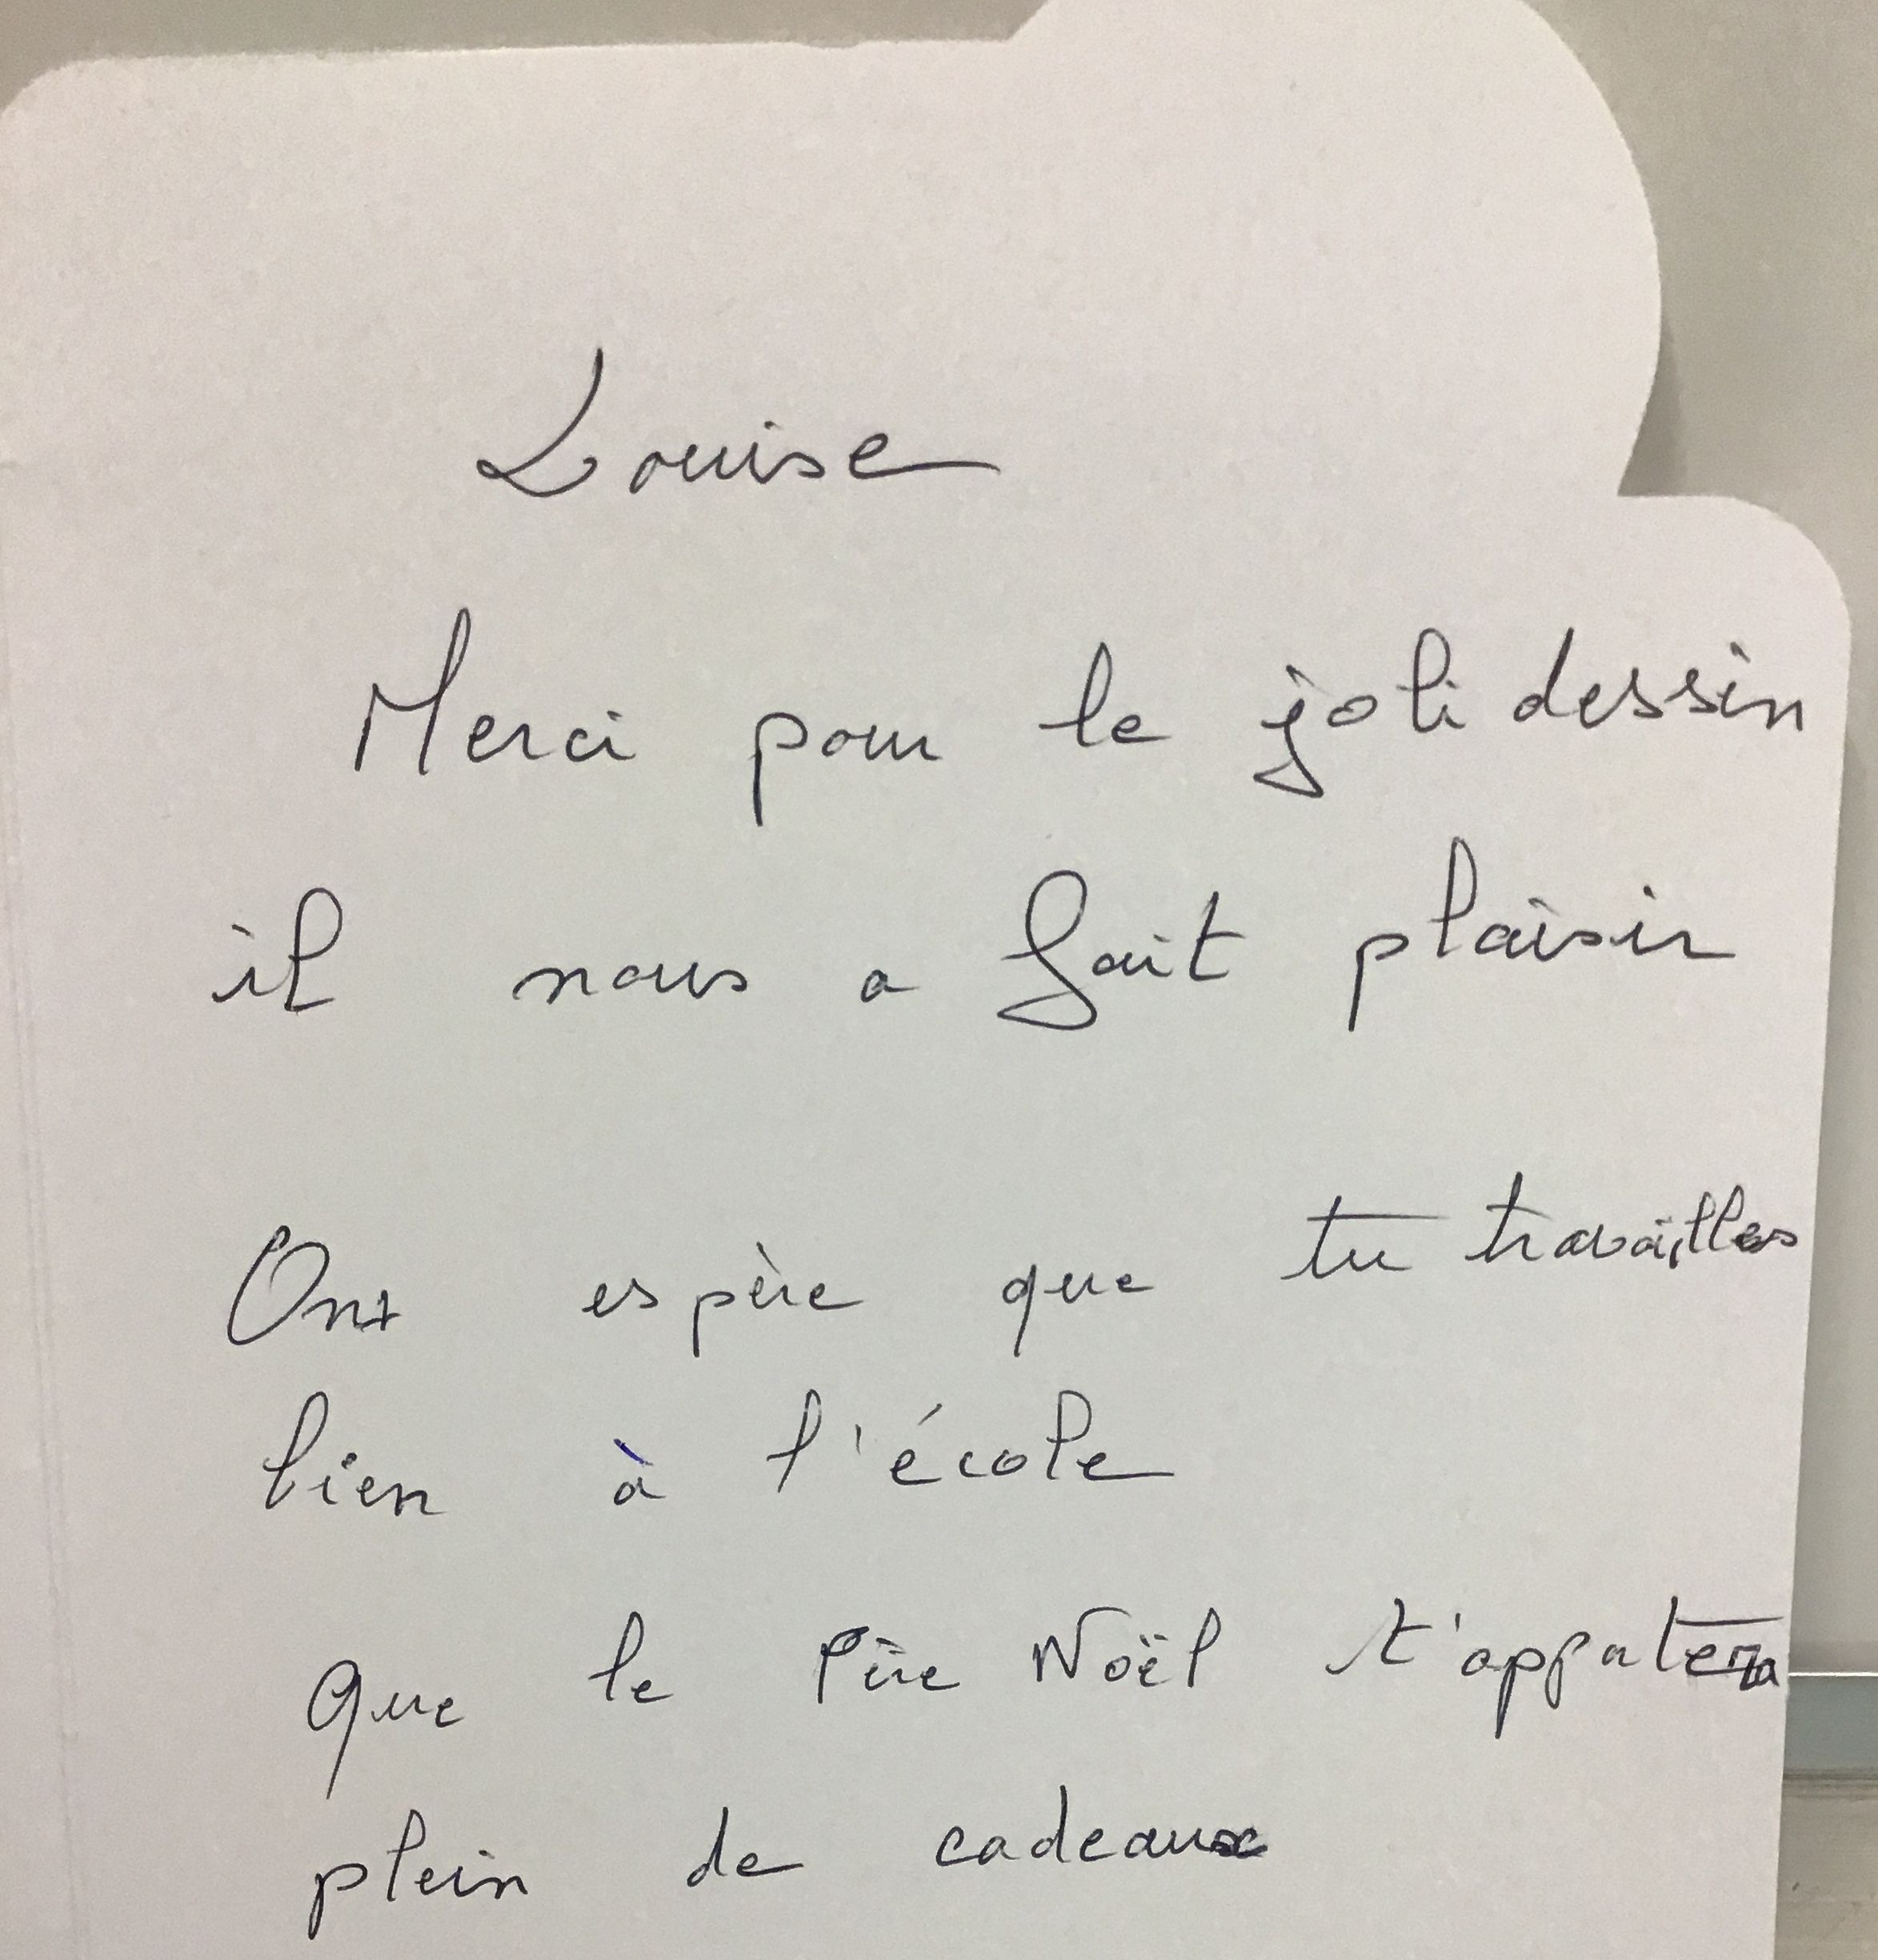 Louise
Merci pour le joli dessin
il nous a fait plaisir
Ont espère que tu travailles
bien à l'école
que le Père Noël t'apportera
plein de cadeaux